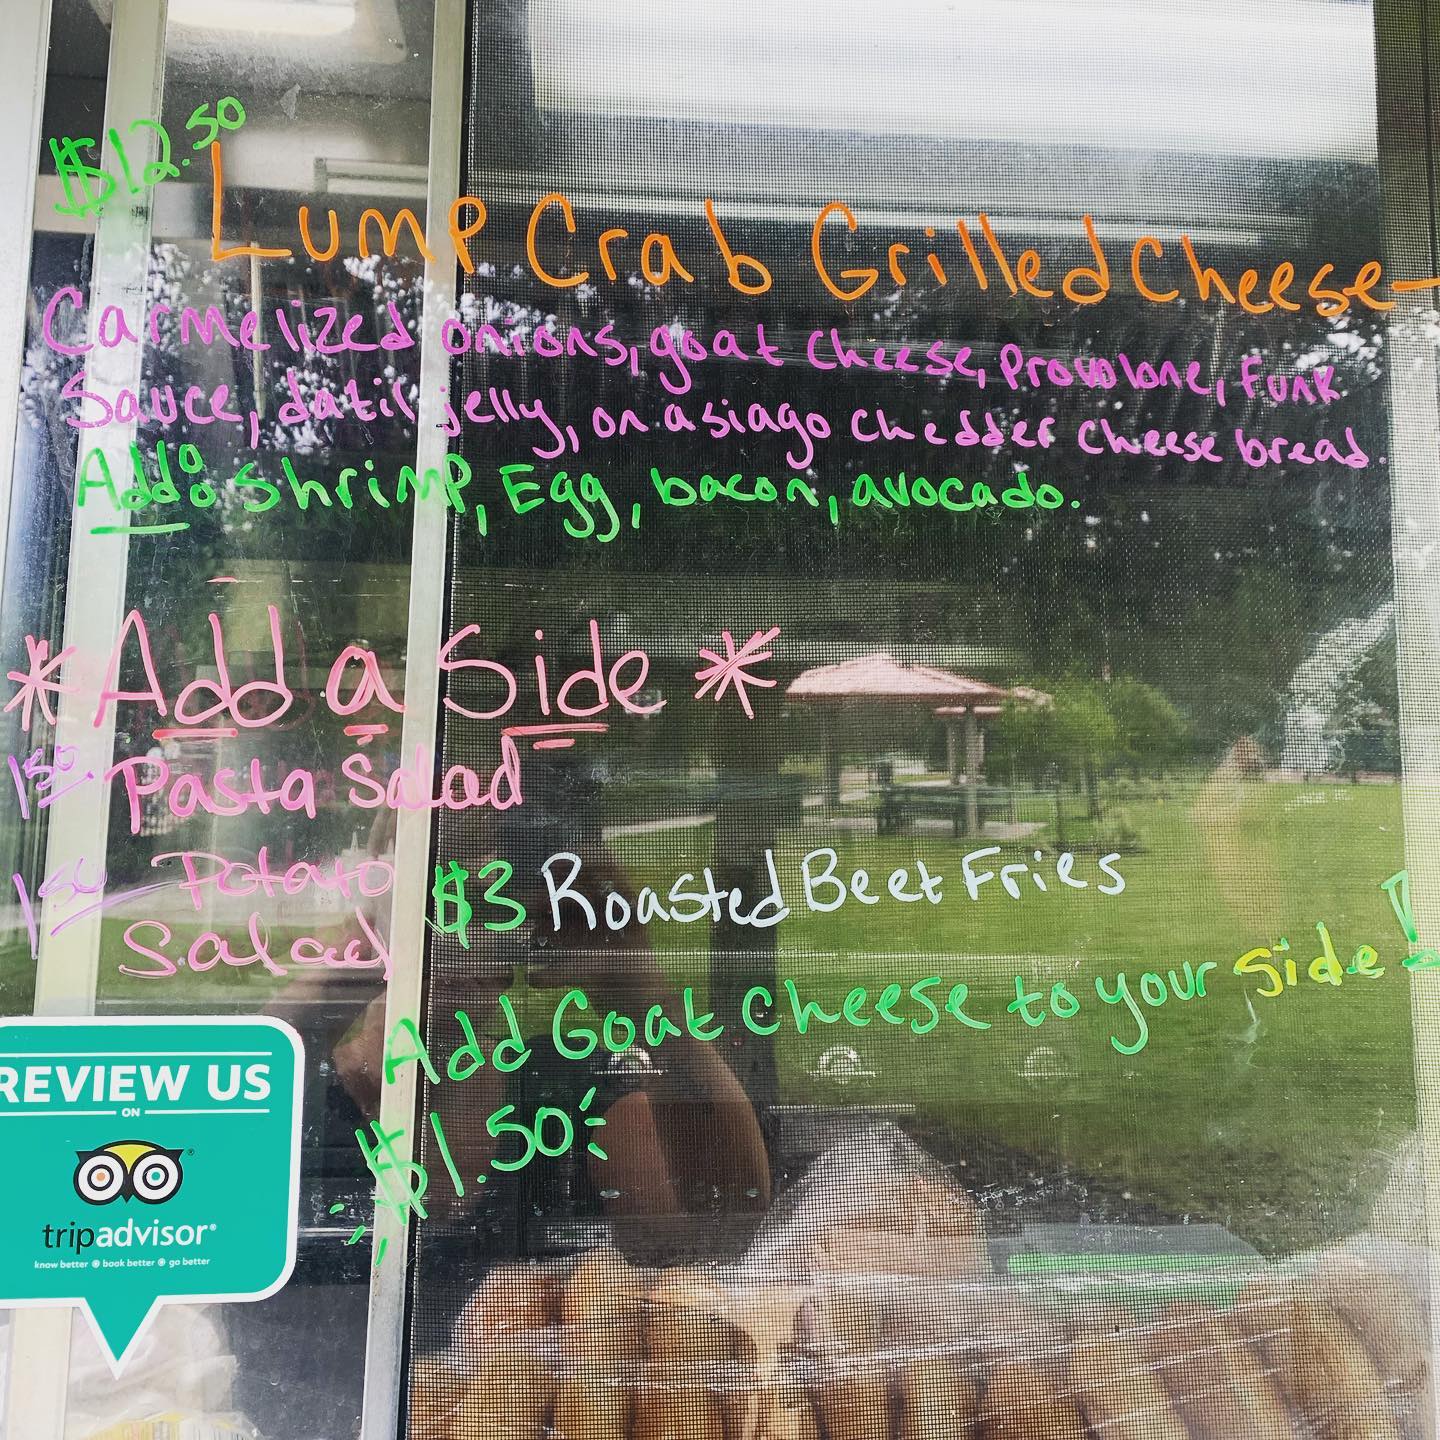 $12.50
Lump Crab Grilled Cheese-
Carmelized onions, goat cheese, provolone, Funk
Sauce, datil jelly, on asiago chedder cheese bread.
Add: Shrimp, Egg, bacon, avocado.
*Add a Side*
1.50 Pasta Salad
1.50 Potato
Salad
$3 Roasted Beet Fries
Add Goat Cheese to your side!
$1.50
REVIEW US
ON
tripadvisor®
know better book better go better